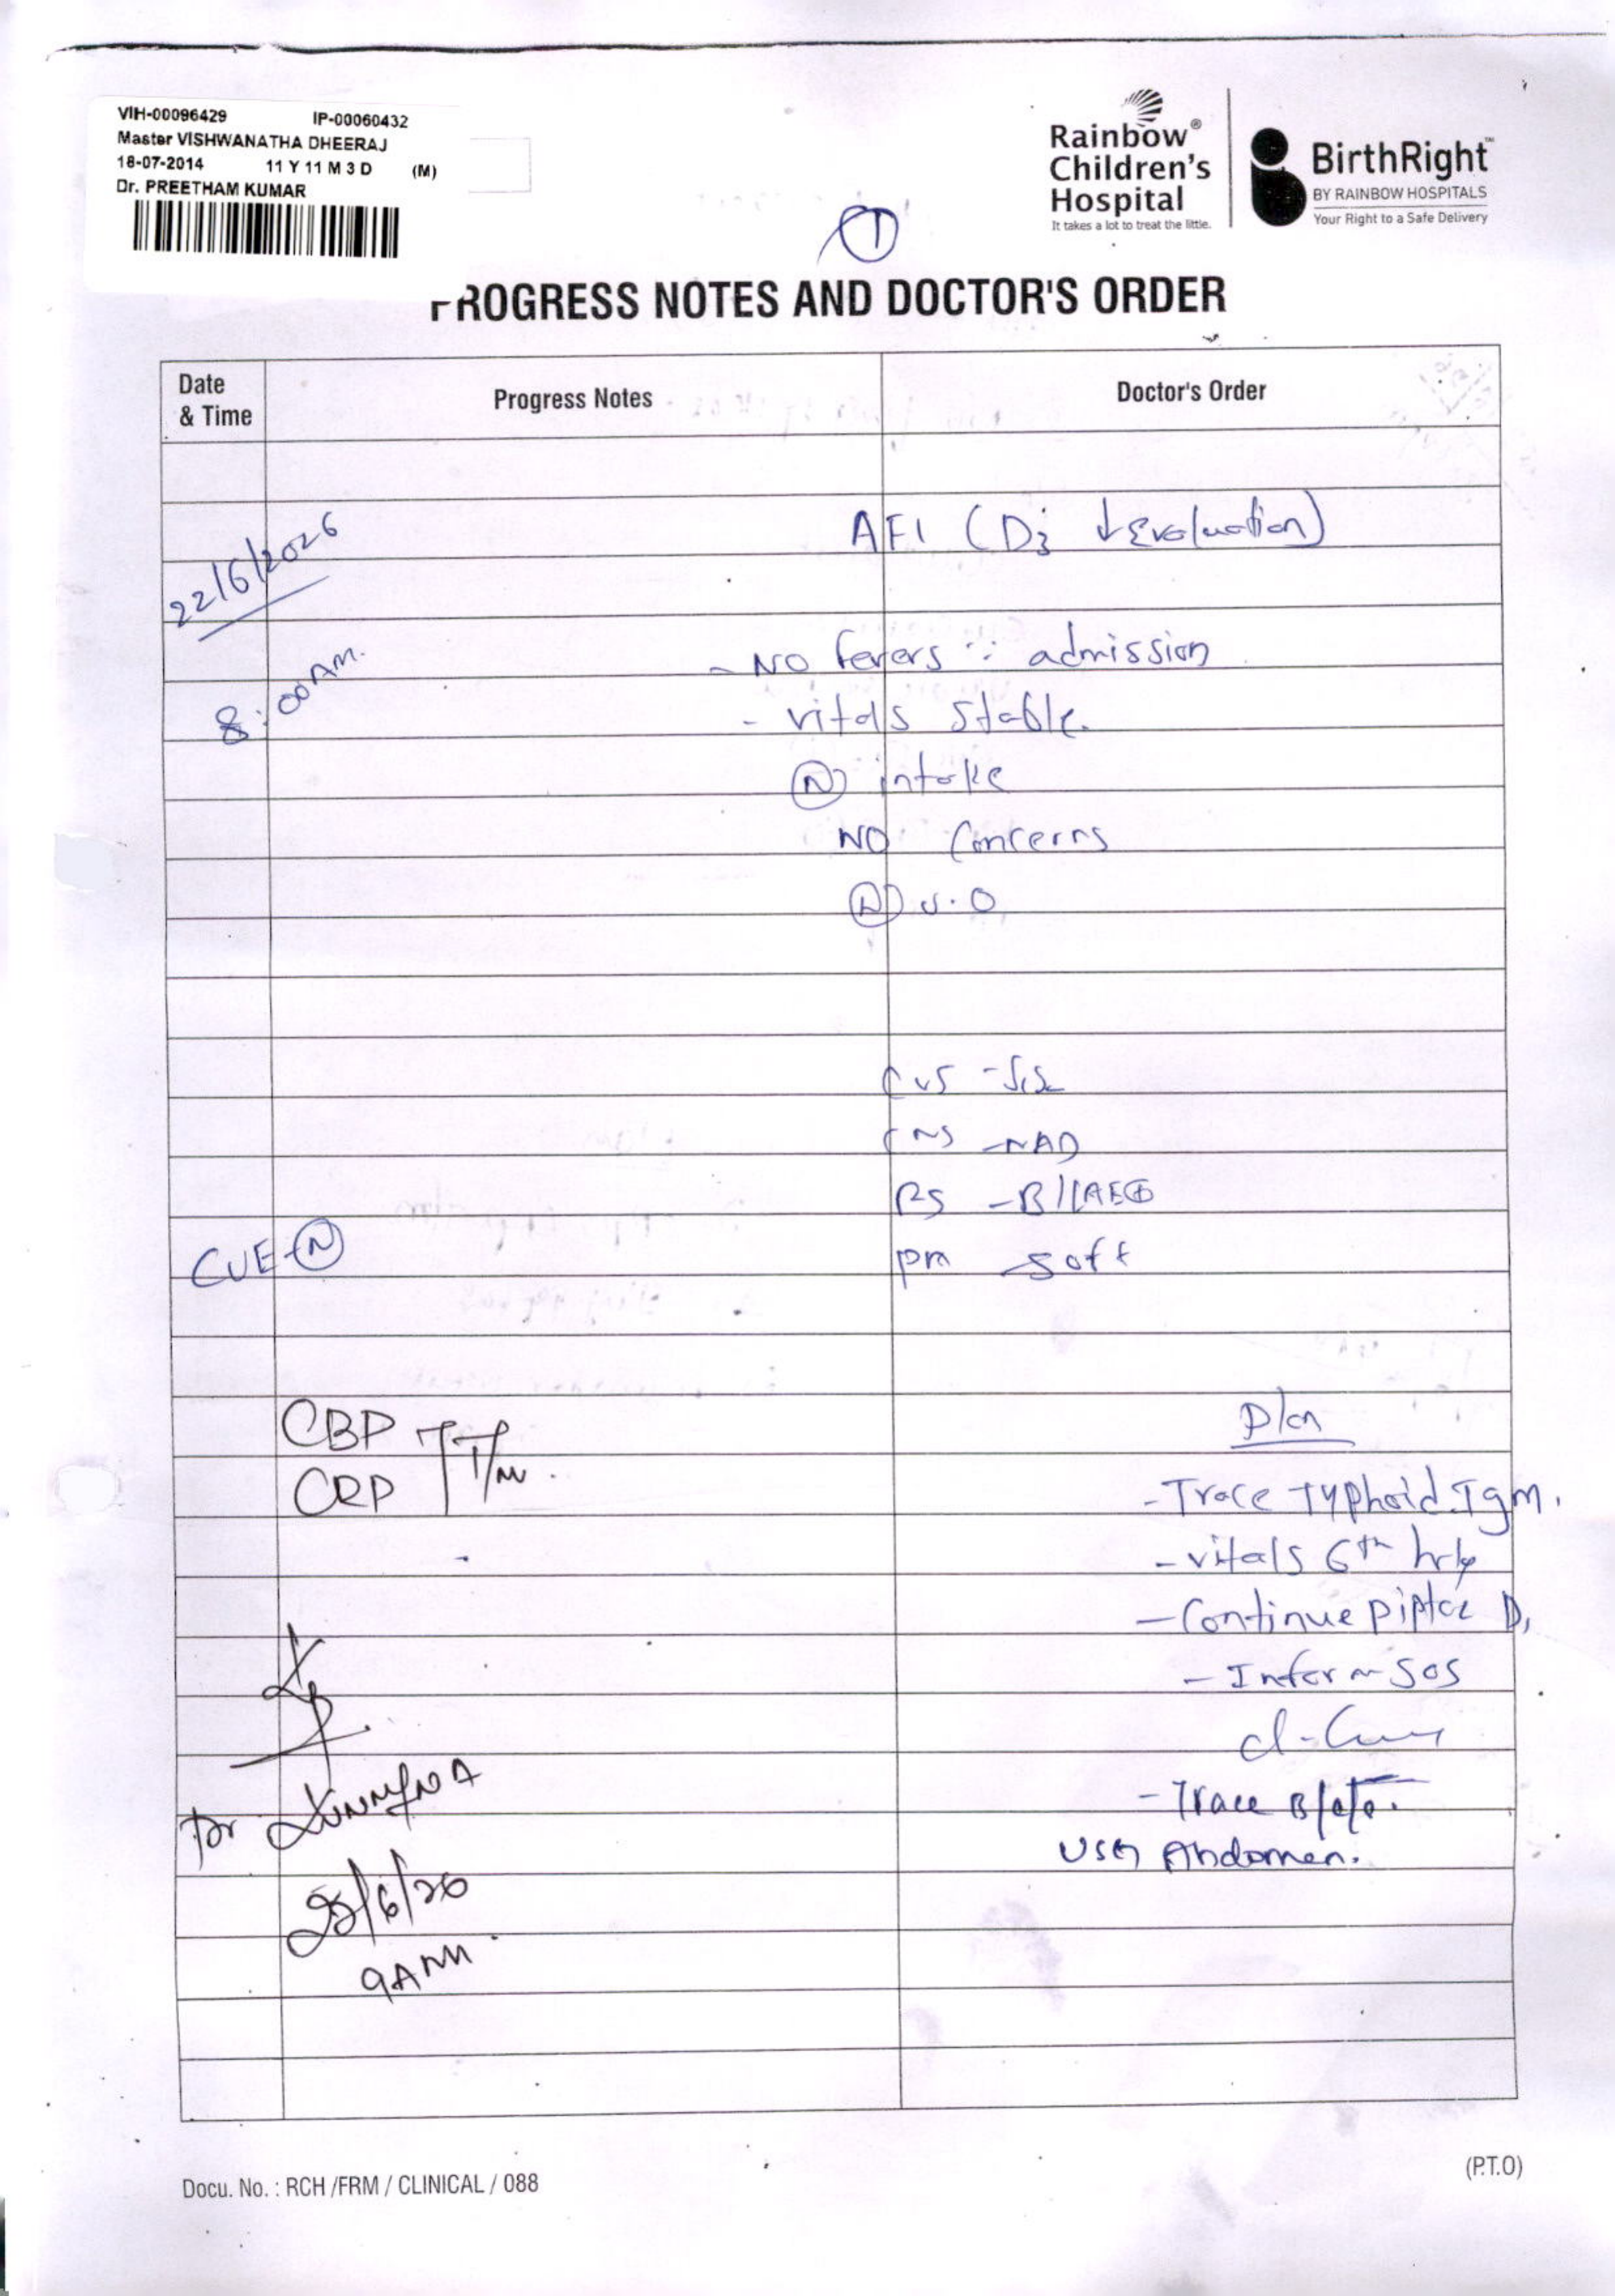 VIH-00096429 IP-00060432
Master VISHWANATHA DHEERAJ
18-07-2014 11 Y 11 M 3 D (M)
Dr. PREETHAM KUMAR
Rainbow®
Children's
Hospital
It takes a lot to treat the little.
BirthRight™
BY RAINBOW HOSPITALS
Your Right to a Safe Delivery
1
PROGRESS NOTES AND DOCTOR'S ORDER
Date & Time
Progress Notes
Doctor's Order
22/6/2026
8:00 AM.
AFI (D3 ↓ Evaluation)
- NO fevers ∵ admission
- vitals stable.
(N) intake
NO Concerns
(N) U.O
CVS - S1S2
CNS - NAD
RS - B/LAE⊕
PA soft
CUE - (N)
CBP
CRP T/m.
Plan
- Trace Typhoid IgM.
- vitals 6th hrly
- Continue piptaz D1
- Inform SOS
- Trace B/c/s.
USG Abdomen.
Dr
9AM
Docu. No. : RCH /FRM / CLINICAL / 088
(P.T.O)